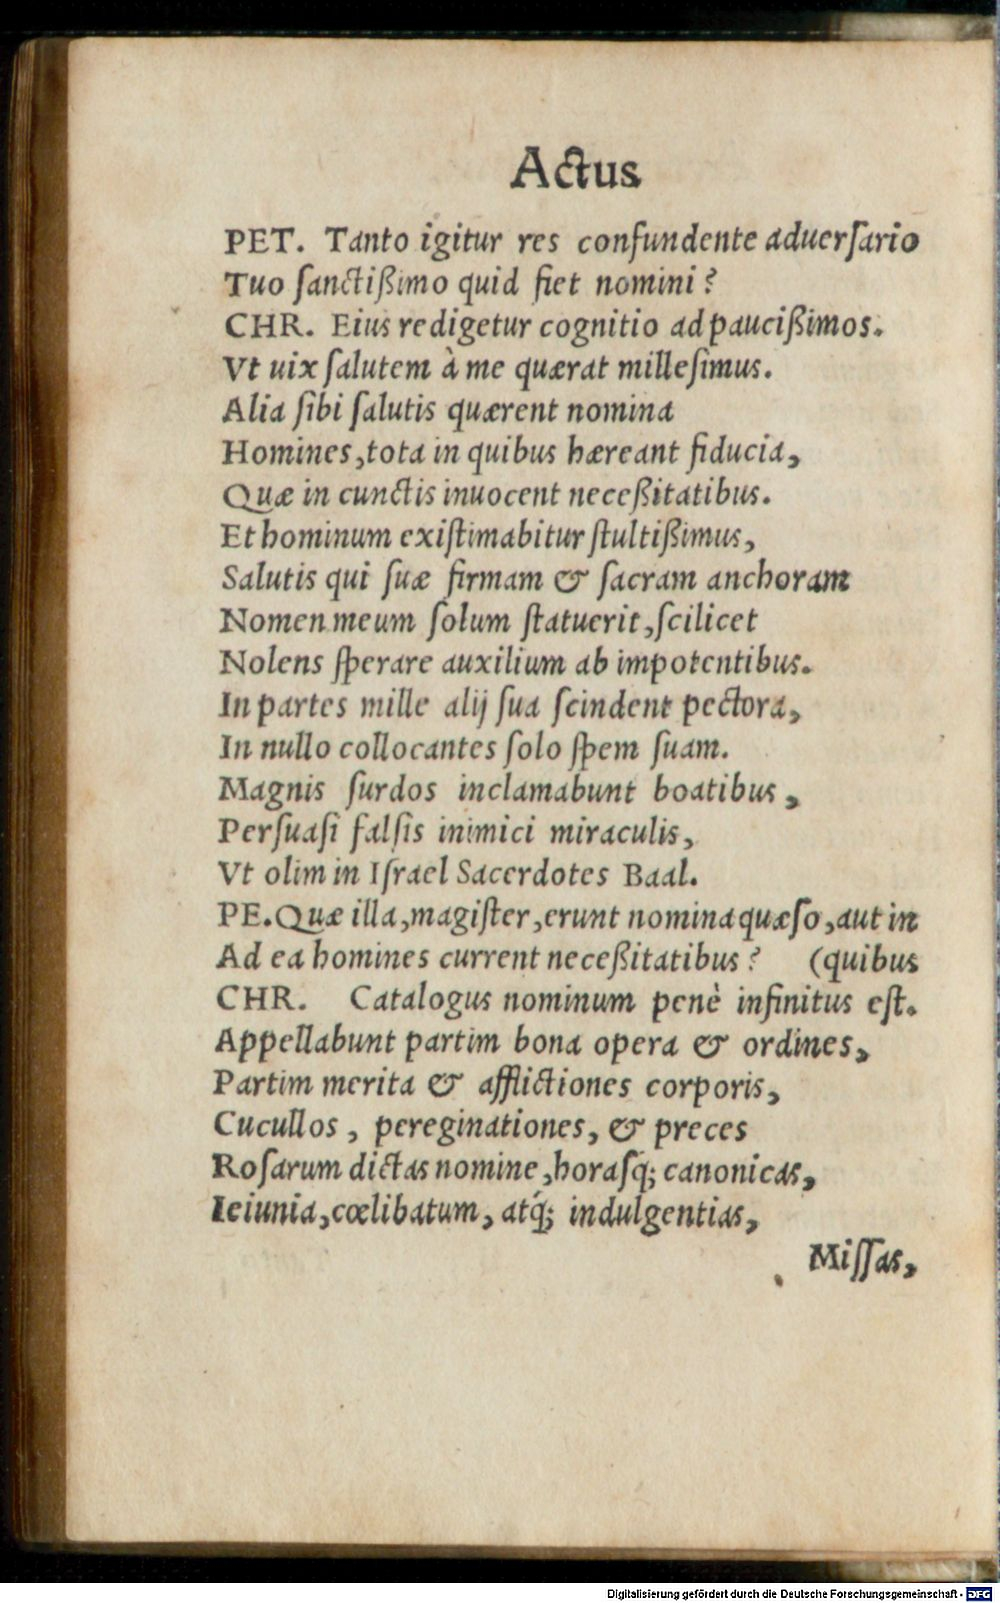 Actus
PET. Tanto igitur res confundente aduerſario
Tuo ſanctißimo quid fiet nomini?
CHR. Eius redigetur cognitio ad paucißimos.
Vt uix ſalutem à me quærat milleſimus.
Alia ſibi ſalutis quærent nomina
Homines, tota in quibus hæreant fiducia,
Quæ in cunctis inuocent neceßitatibus.
Et hominum exiſtimabitur ſtultißimus,
Salutis qui ſuæ firmam & ſacram anchoram
Nomen meum ſolum ſtatuerit, ſcilicet
Nolens ſperare auxilium ab impotentibus.
In partes mille alij ſua ſcindent pectora,
In nullo collocantes ſolo ſpem ſuam.
Magnis ſurdos inclamabunt boatibus,
Perſuaſi falſis inimici miraculis,
Vt olim in Iſrael Sacerdotes Baal.
PE. Quæ illa, magiſter, erunt nomina quæſo, aut in
Ad ea homines current neceßitatibus? (quibus
CHR. Catalogus nominum penè infinitus eſt.
Appellabunt partim bona opera & ordines,
Partim merita & afflictiones corporis,
Cucullos, pereginationes, & preces
Roſarum dictas nomine, horaſq́; canonicas,
Ieiunia, cœlibatum, atq́; indulgentias,
Miſſas,
Digitalisierung gefördert durch die Deutsche Forschungsgemeinschaft - DFG